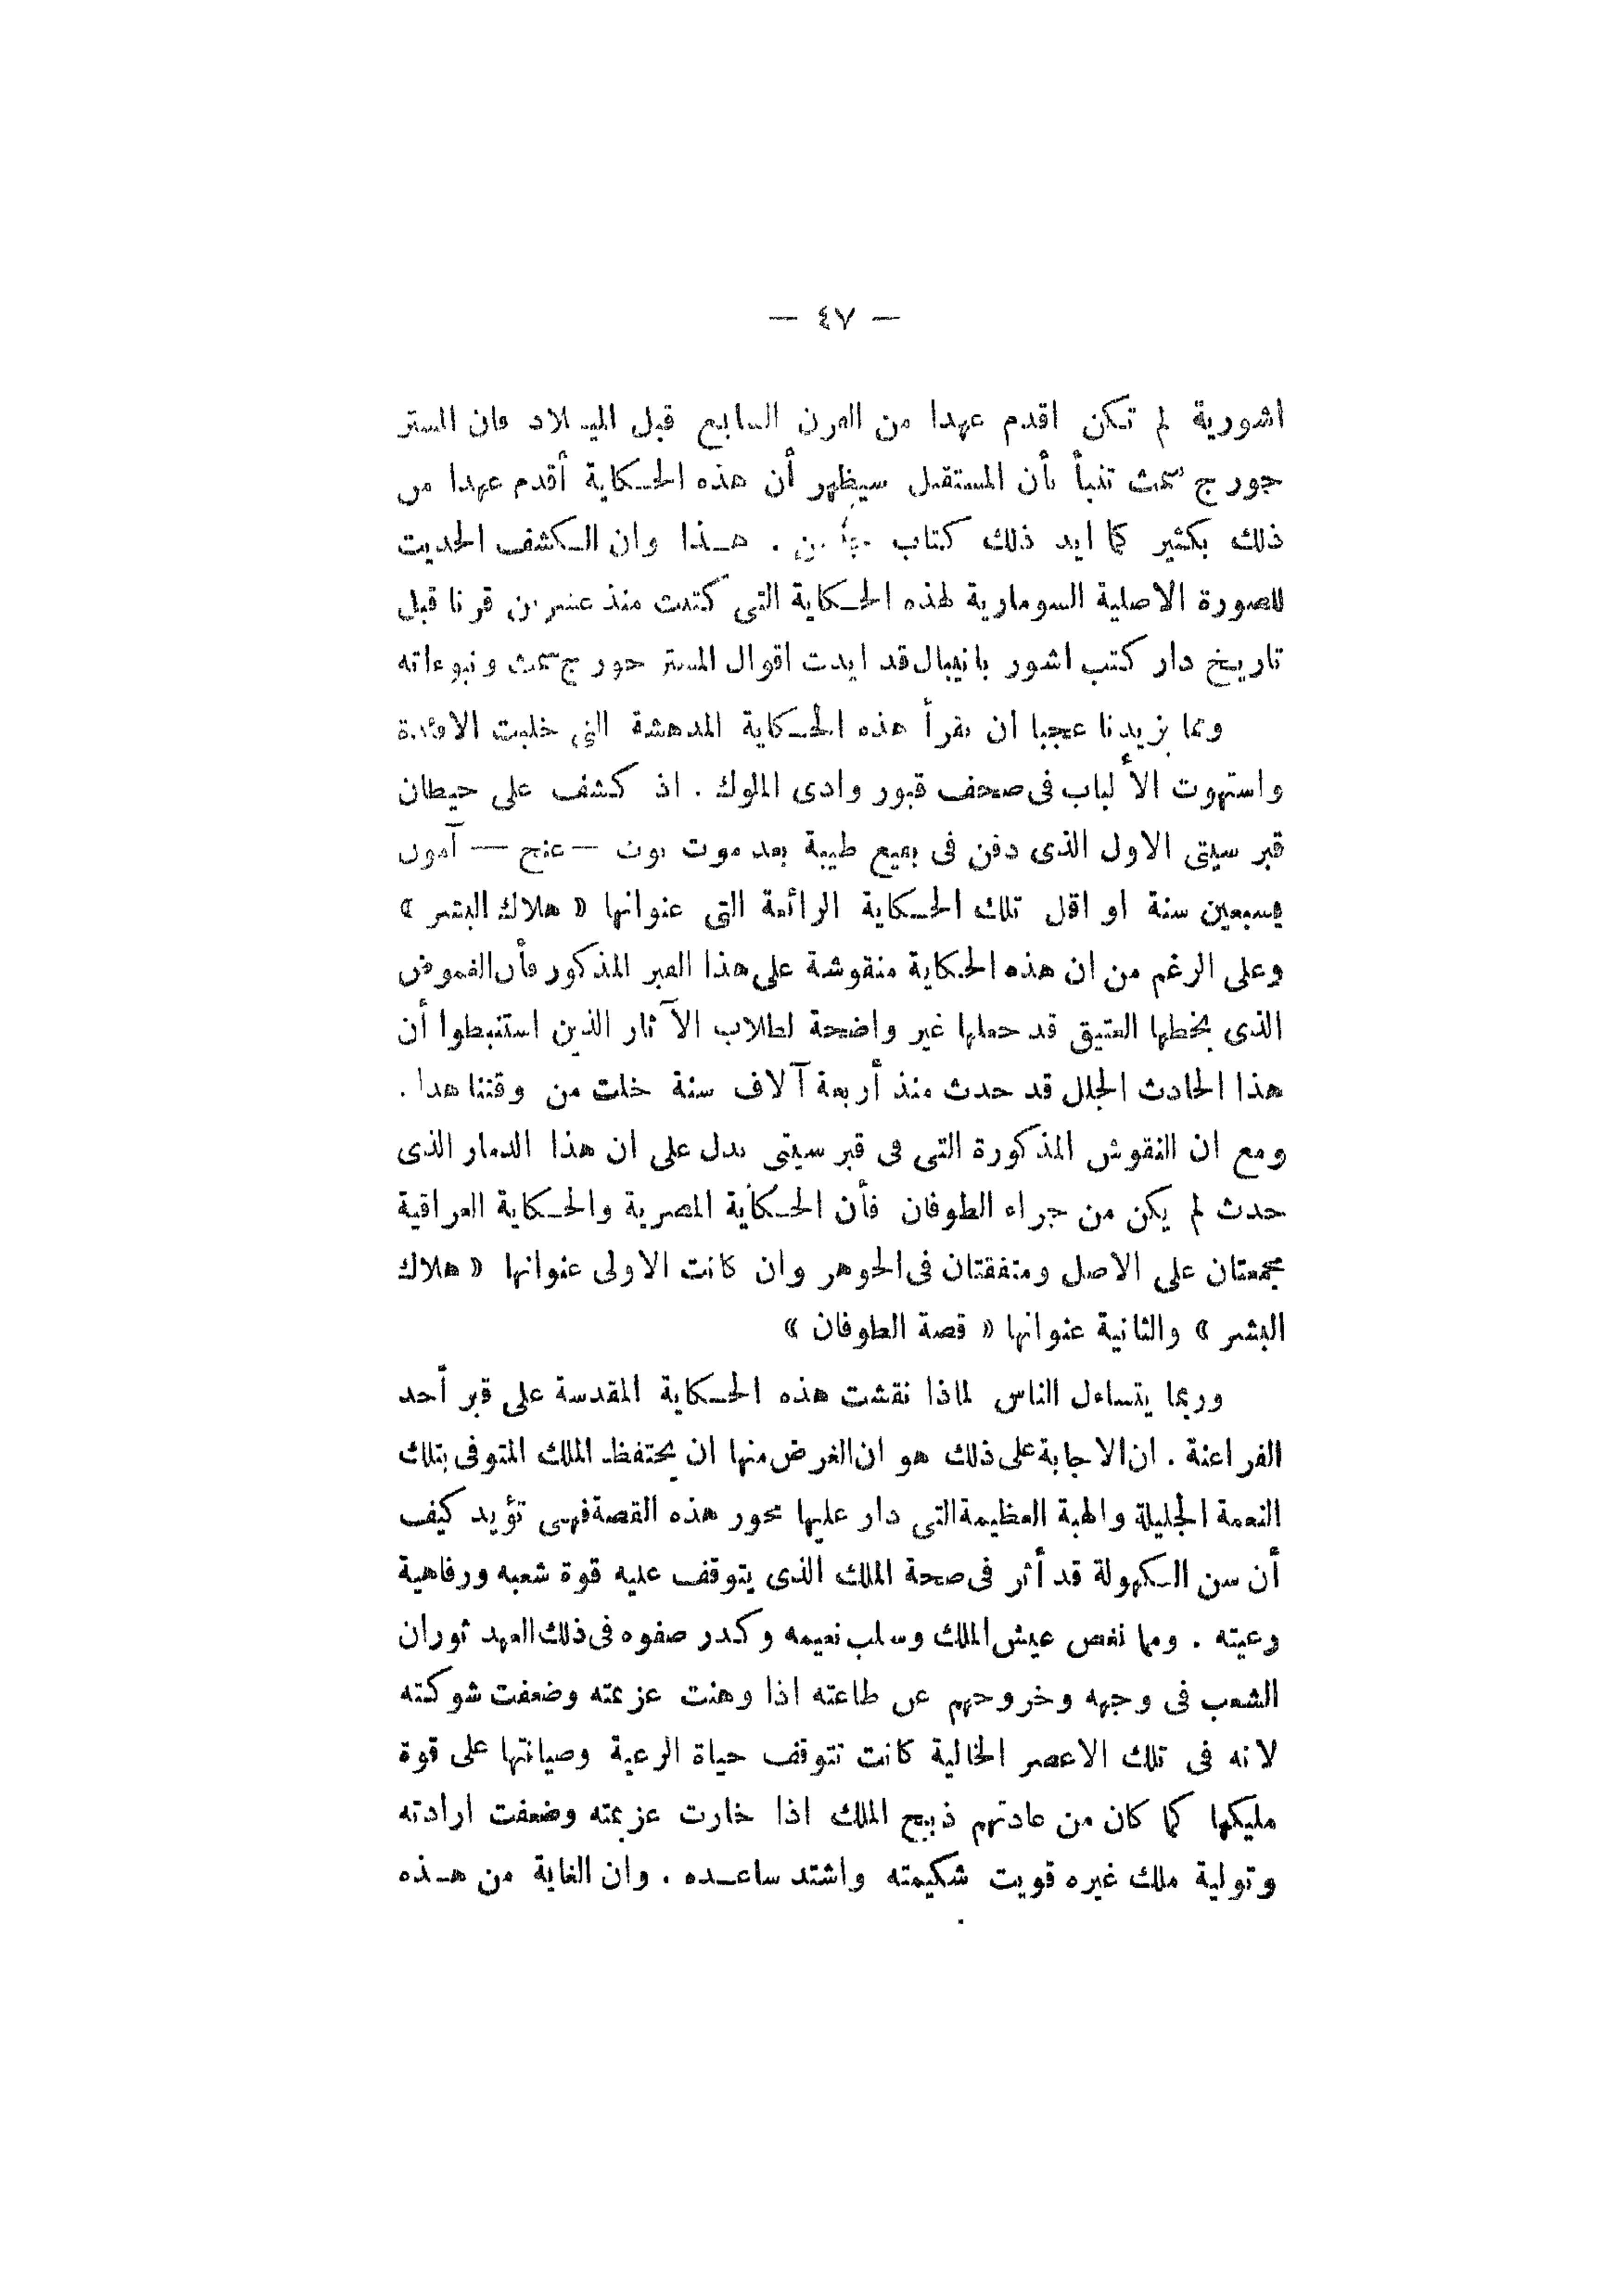 — ٤٧ —
اشورية لم تكن اقدم عهدا من القرن السابع قبل الميلاد فان المستر
جورج سمث تنبأ بأن المستقبل سيظهر أن هذه الحكاية أقدم عهدا من
ذلك بكثير كما ايد ذلك كتاب . هذا وان الكشف الحديث
للصورة الاصلية السومارية لهذه الحكاية التى كتبت منذ عشرين قرنا قبل
تاريخ دار كتب اشور بانيبال قد ايدت اقوال المستر جورج سمث ونبوءاته
ومما يزيدنا عجبا ان نقرأ هذه الحكاية المدهشة التى خلبت الافئدة
واستهوت الألباب فى صحف قبور وادى الملوك . اذ كشف على حيطان
قبر سيتى الاول الذى دفن فى بقيع طيبة بعد موت توت — عنج — آمون
بسبعين سنة او اقل تلك الحكاية الرائعة التى عنوانها « هلاك البشر »
وعلى الرغم من ان هذه الحكاية منقوشة على هذا القبر المذكور فأن الغموض
الذى بخطها العتيق قد جعلها غير واضحة لطلاب الآثار الذين استنبطوا أن
هذا الحادث الجلل قد حدث منذ أربعة آلاف سنة خلت من وقتنا هذا .
ومع ان النقوش المذكورة التى فى قبر سيتى تدل على ان هذا الدمار الذى
حدث لم يكن من جراء الطوفان فأن الحكاية المصرية والحكاية العراقية
مجمعتان على الاصل ومتفقتان فى الجوهر وان كانت الاولى عنوانها « هلاك
البشر » والثانية عنوانها « قصة الطوفان »
وربما يتساءل الناس لماذا نقشت هذه الحكاية المقدسة على قبر أحد
الفراعنة . ان الاجابة على ذلك هو ان الغرض منها ان يحتفظ الملك المتوفى بتلك
النعمة الجليلة والهبة العظيمة التى دار عليها محور هذه القصة فهى تؤيد كيف
أن سن الكهولة قد أثر فى صحة الملك الذى يتوقف عليه قوة شعبه ورفاهية
رعيته . ومما نغص عيش الملك وسلب نعيمه وكدر صفوه فى ذلك العهد ثوران
الشعب فى وجهه وخروجهم عن طاعته اذا وهنت عزيمته وضعفت شوكته
لانه فى تلك الاعصر الخالية كانت تتوقف حياة الرعية وصيانتها على قوة
مليكها كما كان من عادتهم ذبيح الملك اذا خارت عزيمته وضعفت ارادته
وتولية ملك غيره قويت شكيمته واشتد ساعده . وان الغاية من هذه